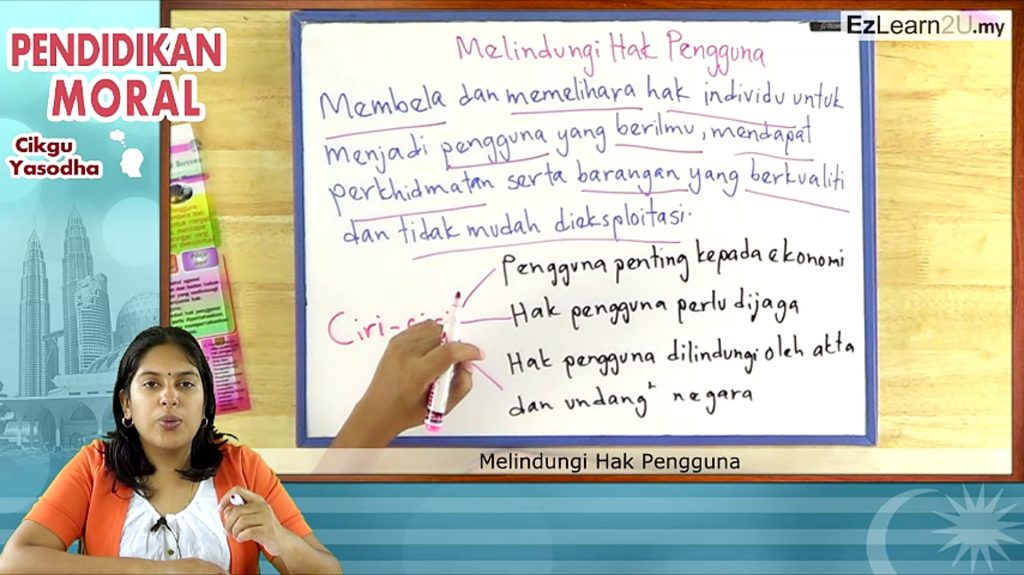 PENDIDIKAN
MORAL
Cikgu
Yasodha
EzLearn2U.my
Melindungi Hak Pengguna
Membela dan memelihara hak individu untuk
menjadi pengguna yang berilmu, mendapat
perkhidmatan serta barangan yang berkualiti
dan tidak mudah dieksploitasi.
Pengguna penting kepada ekonomi
Ciri-ciri
Hak pengguna perlu dijaga
Hak pengguna dilindungi oleh akta
dan undang² negara
Melindungi Hak Pengguna